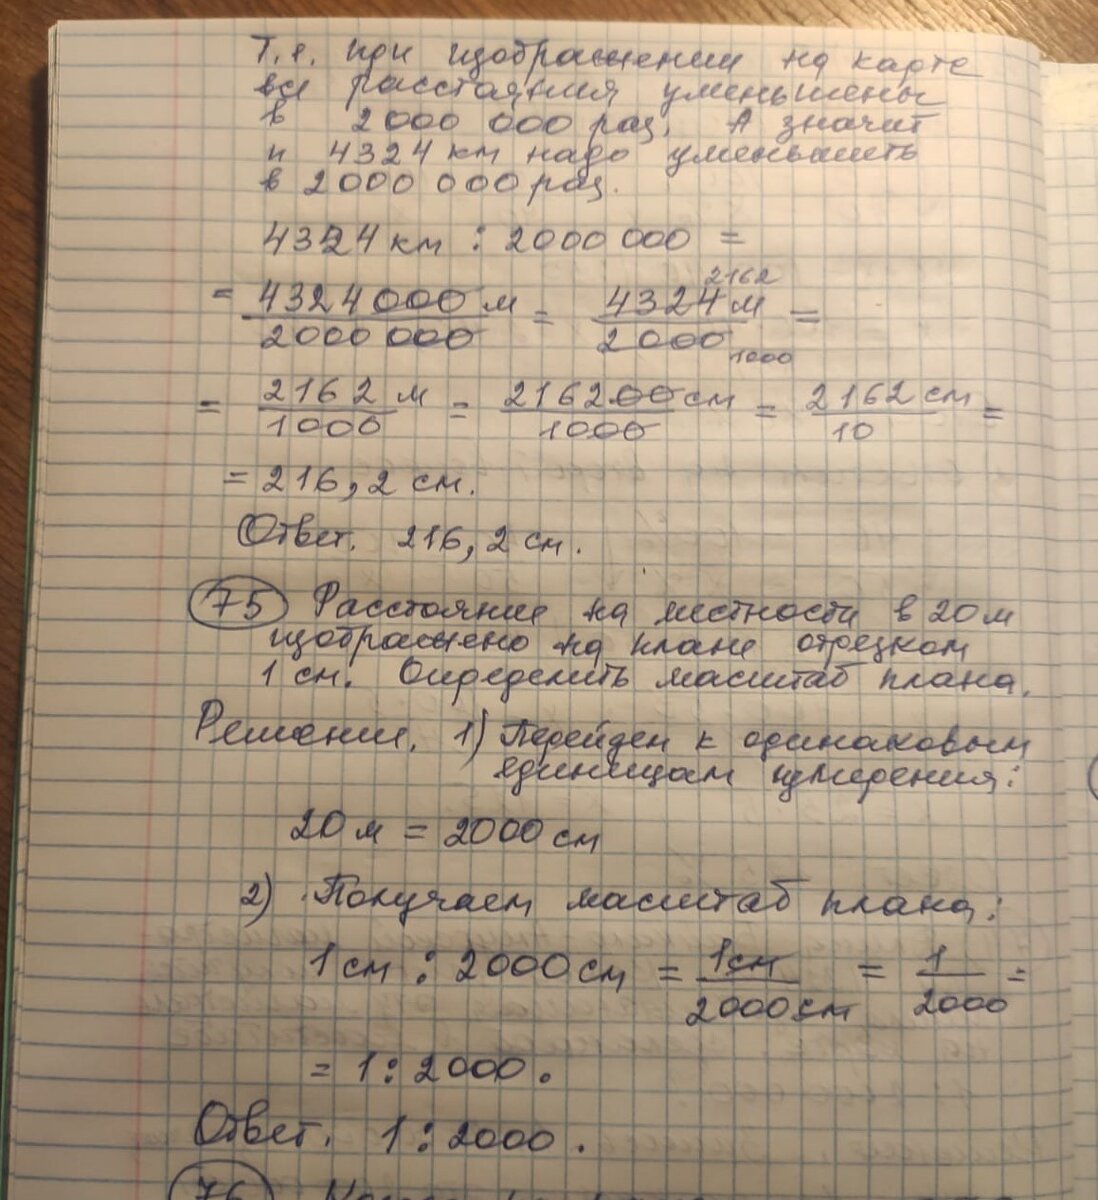 Т.е. при изображении на карте
все расстояния уменьшены
в 2000 000 раз. А значит
и 4324 км надо уменьшить
в 2000 000 раз.
4324 км : 2000 000 =
= 4324000 м / 2000 000 = 4324 м 2162 / 2000 1000 =
= 2162 м / 1000 = 216200 см / 1000 = 2162 см / 10 =
= 216,2 см.
Ответ. 216,2 см.
75 Расстояние на местности в 20 м
изображено на плане отрезком
1 см. Определить масштаб плана.
Решение. 1) Перейдем к одинаковым
единицам измерения:
20 м = 2000 см
2) Получаем масштаб плана:
1 см : 2000 см = 1 см / 2000 см = 1 / 2000 =
= 1 : 2000.
Ответ. 1 : 2000.
76